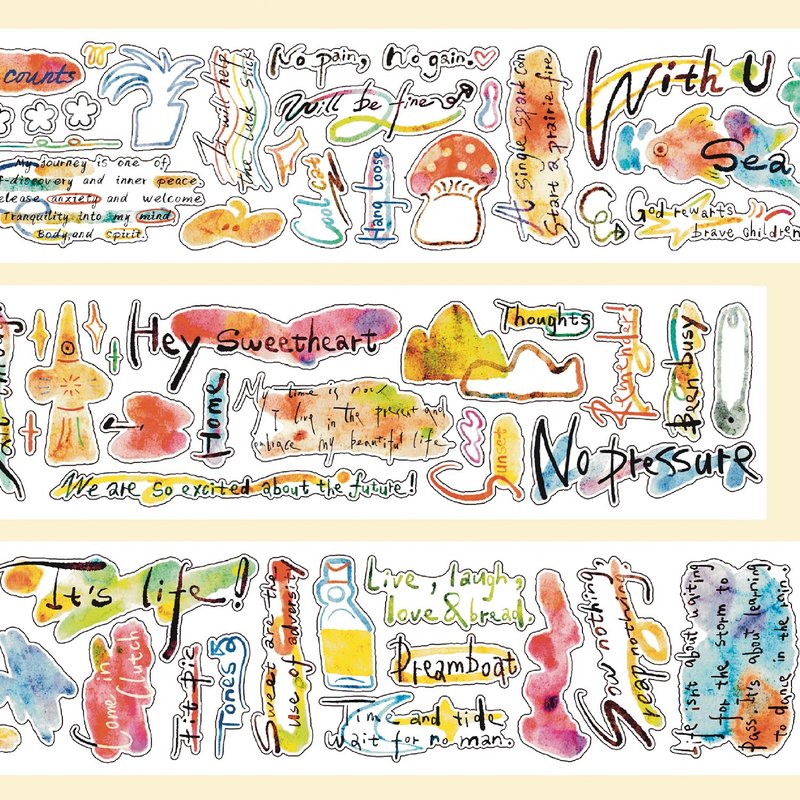 counts
My journey is one of
f-discovery and inner peace.
elease anxiety and welcome
Tranquility into my mind,
Body, and spirit.
It will help
The Luck Stick
No pain, No gain.
Will be fine
Cool Cat
Hang loose
A single spark can
Start a prairie fire
With U
Sea
God rewarts
brave children
Hey Sweetheart
Home
My time is now
I live in the present and
embrace my beautiful life
We are so excited about the future!
Thoughts
Remember!
Been busy
my
Sunset
No pressure
It's life!
Come in
Clutch
Fit pic
Tones
Sweet are the
use of adversity
Live, laugh,
love & bread.
Dreamboat
Time and tide
Wait for no man.
Sow nothing,
reap nothing.
Life isn't about waiting
for the storm to
pass. it's about learning
to dance in the rain.